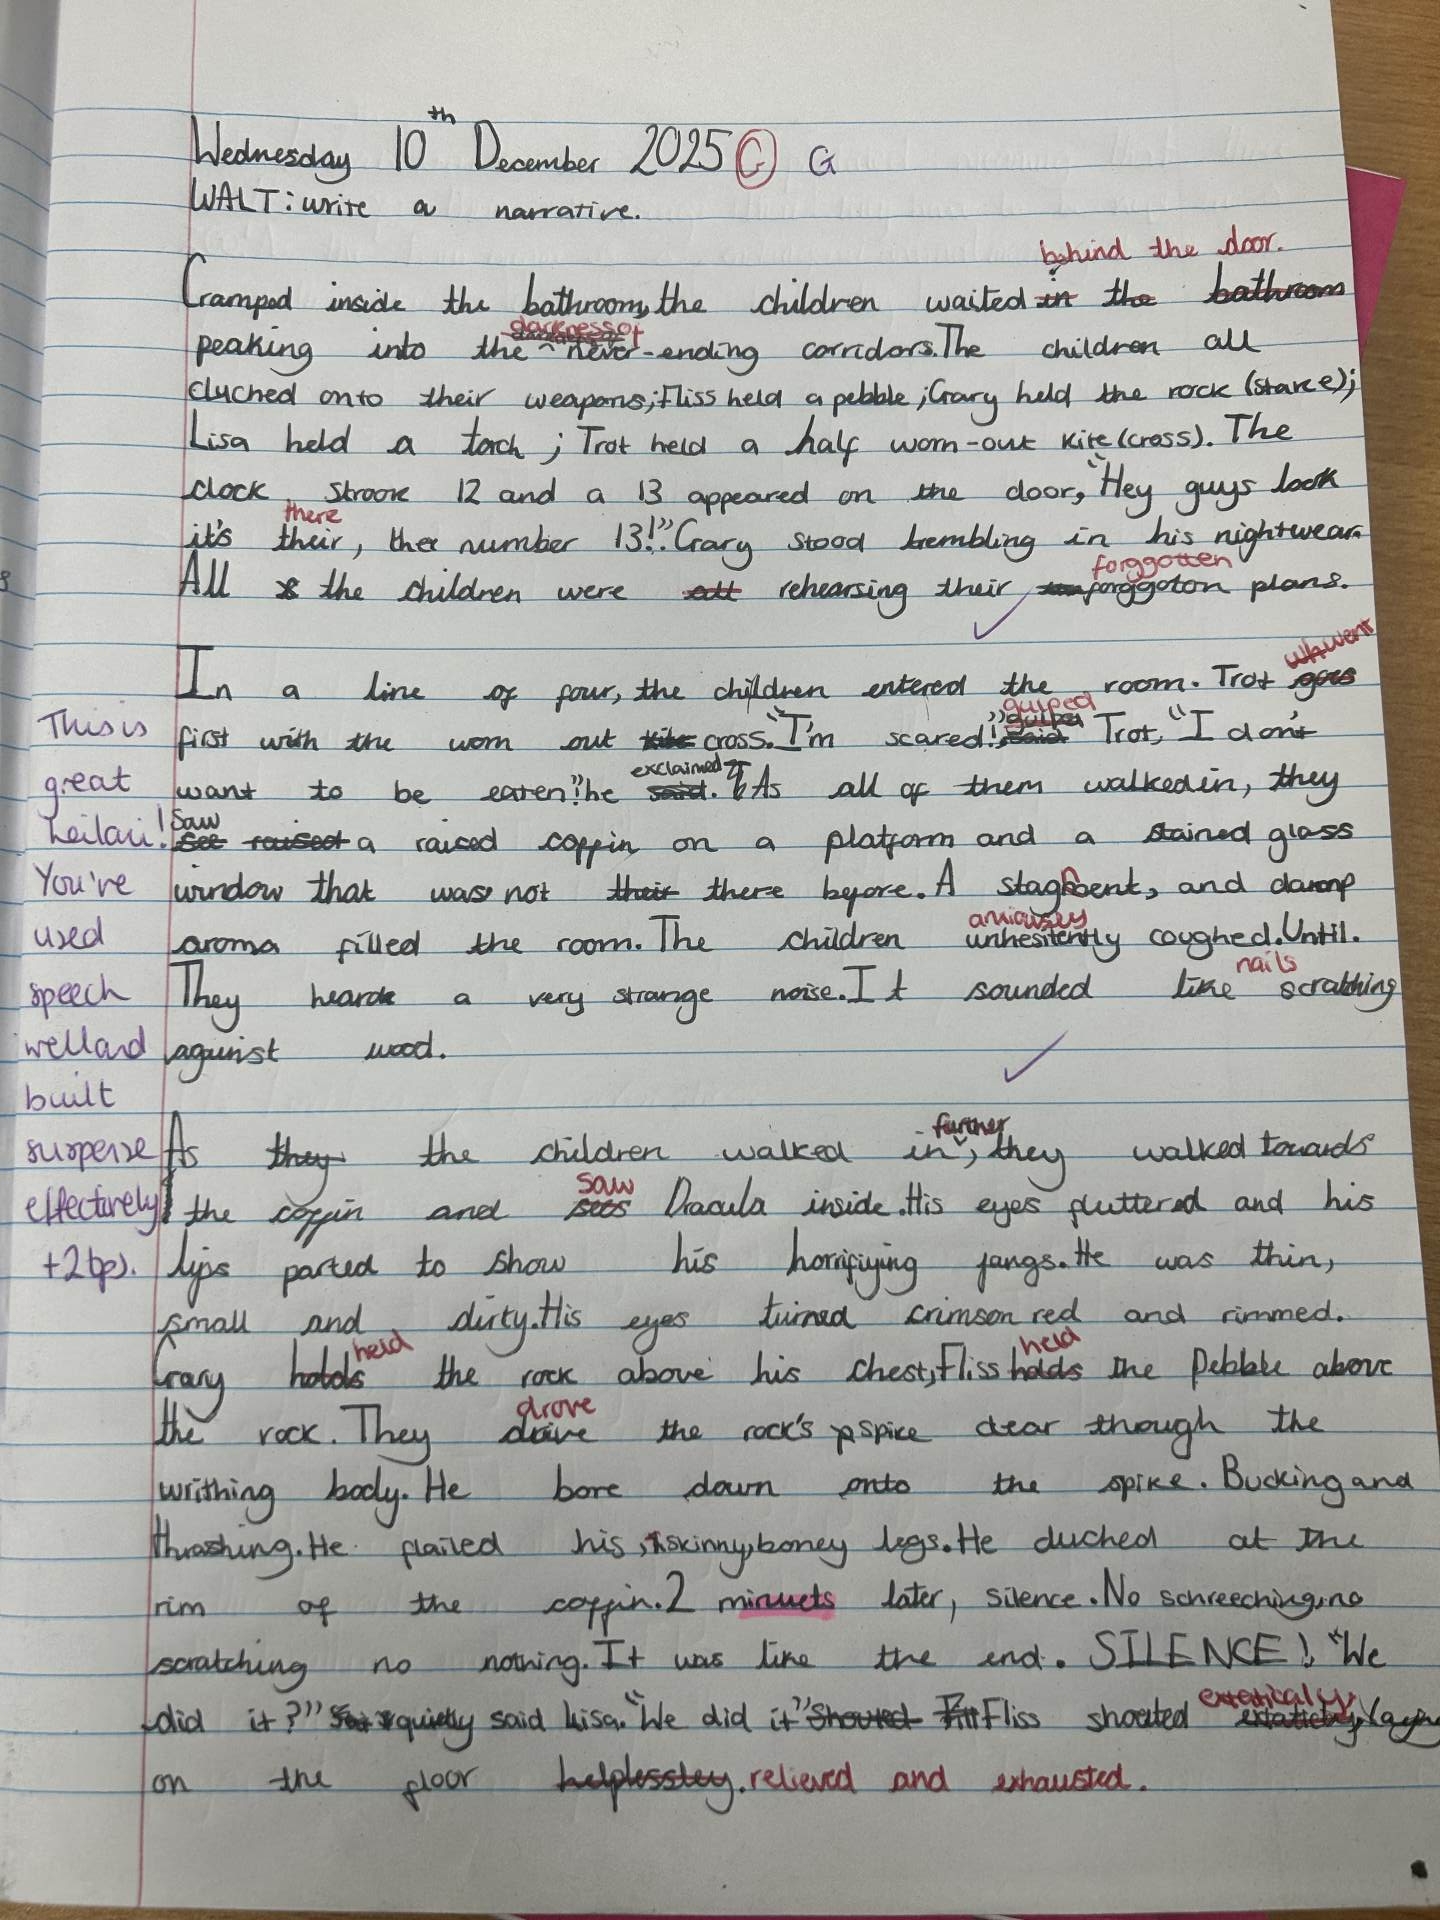 Wednesday 10th December 2025 G G
WALT: write a narrative.
behind the door.
Cramped inside the bathroom, the children waited in the bathroom
darkness of
peaking into the never-ending corridors. The children all
cluched onto their weapons; Fliss held a pebble; Gary held the rock (starce);
Lisa held a torch; Trot held a half worn-out kite (cross). The
clock strook 12 and a 13 appeared on the door, "Hey guys look
there
it's their, the number 13!". Gary stood trembling in his nightwear.
forggotten
All the children were all rehearsing their forggoton plans.
went
In a line of four, the children entered the room. Trot goes
gulped
first with the worn out kite cross. "I'm scared!" said Trot, "I don't
exclaimed
want to be eaten!" he said. As all of them walked in, they
saw
see raised a raised coffin on a platform and a stained glass
window that was not their there before. A stagnent, and damp
anxiousey
aroma filled the room. The children unhesitently coughed. Until.
nails
They heard a very strange noise. It sounded like scratching
against wood.
This is
great
Leilani!
You've
used
speech
well and
built
suspense
effectively
+2bp).
further
As they the children walked in, they walked towards
saw
the coffin and sees Dracula inside. His eyes fluttered and his
lips parted to show his horrifiying fangs. He was thin,
small and dirty. His eyes turned crimson red and rimmed.
held held
Gary holds the rock above his chest, Fliss holds the Pebble above
drove
the rock. They drive the rock's spike clear though the
writhing body. He bore down onto the spike. Bucking and
thrashing. He flailed his, skinny, boney legs. He cluched at the
rim of the coffin. 2 minuets later, silence. No schreeching, no
scratching no nothing. It was like the end. SILENCE! "We
extatically
did it?" quietly said Lisa. "We did it" Shouted Fliss shouted extaticly, laying
on the floor helplessley. relieved and exhausted.